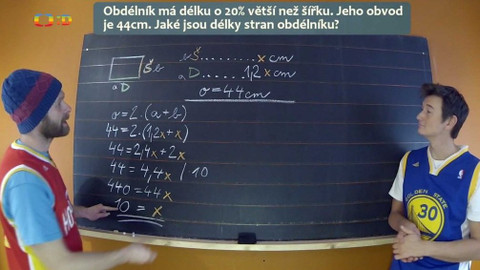 Obdélník má délku o 20% větší než šířku. Jeho obvod
je 44cm. Jaké jsou délky stran obdélníku?
b Š.........x cm
a D......1,2 x cm
o = 44 cm
Š b
a D
o = 2 · (a + b)
44 = 2 · (1,2x + x)
44 = 2,4x + 2x
44 = 4,4x / 10
440 = 44x
10 = x
GOLDEN STATE
30